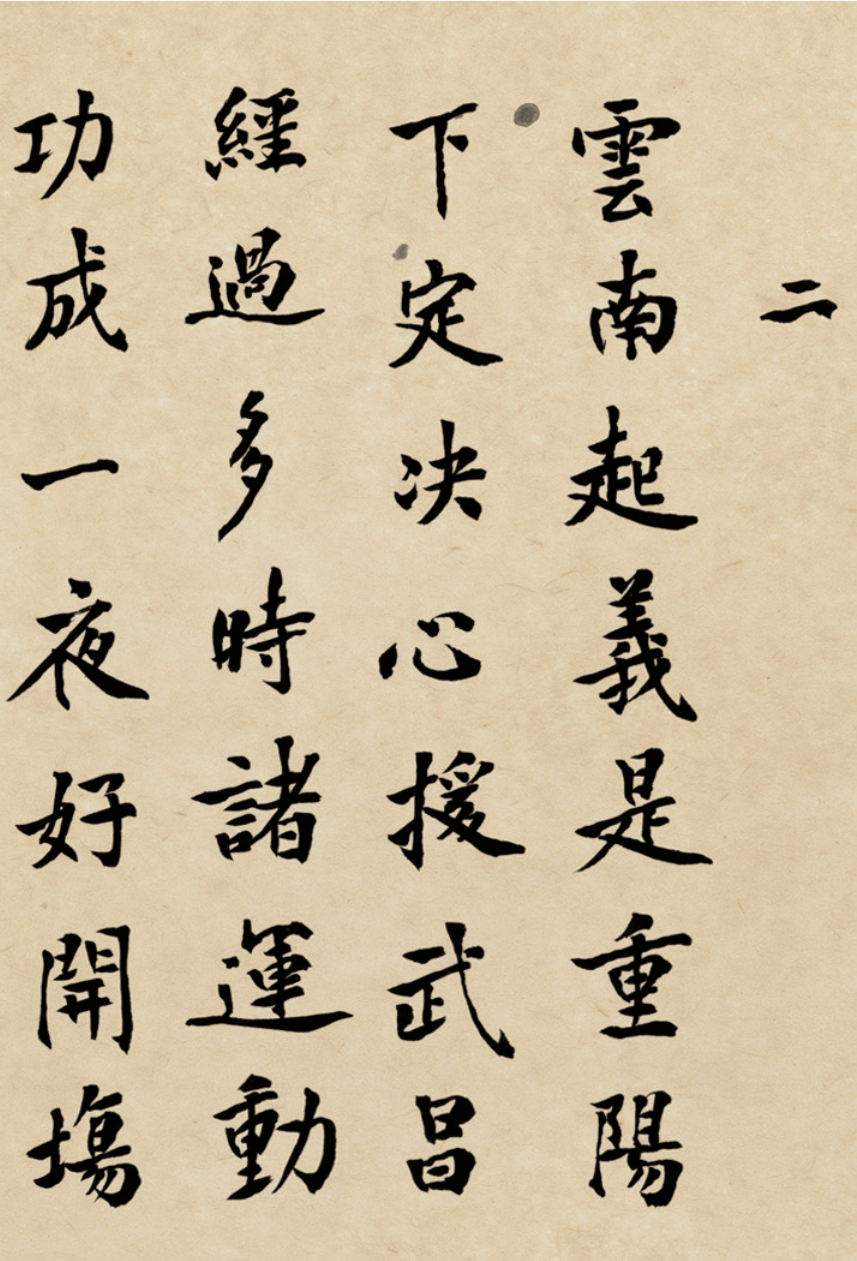 二
雲南起義是重陽
下定决心援武昌
經過多時諸運動
功成一夜好開塲